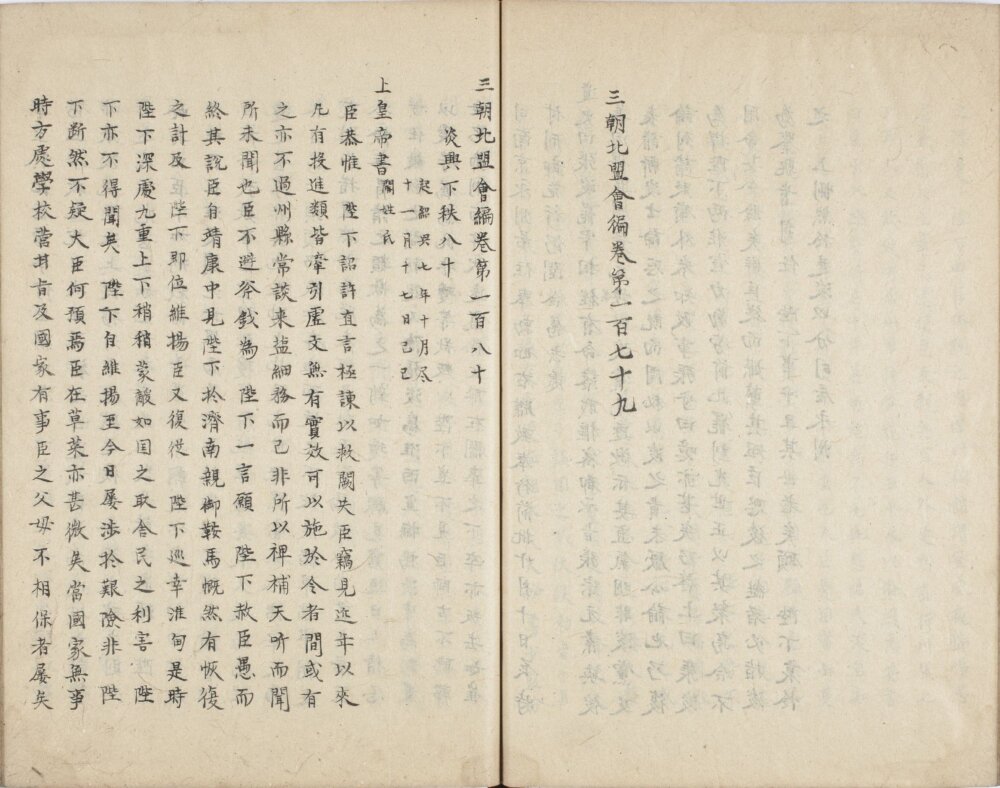 三朝北盟會編卷第一百七十九
三朝北盟會編卷第一百八十
炎興下秩八十
起紹興七年十月尽
十一月十七日己巳
上皇帝書闕姓氏
臣恭惟陛下詔許直言極諫以救闕失臣竊見近年以來
凡有投進類皆牽引虛文無有實效可以施於今者間或有
之亦不過州縣常談米塩細務而已非所以裨補天听而聞
所未聞也臣不避斧鉞為陛下一言願陛下赦臣愚而
終其說臣自靖康中見陛下於濟南親御鞍馬慨然有恢復
之計及陛下即位維揚臣又復從陛下巡幸淮甸是時
陛下深處九重上下稍稍蒙蔽如国之取舍民之利害陛
下亦不得聞矣陛下自維揚至今日屡涉於艱險非陛
下断然不疑大臣何預焉臣在草菜亦甚微矣當國家無事
時方處學校營甘旨及國家有事臣之父母不相保者屡矣